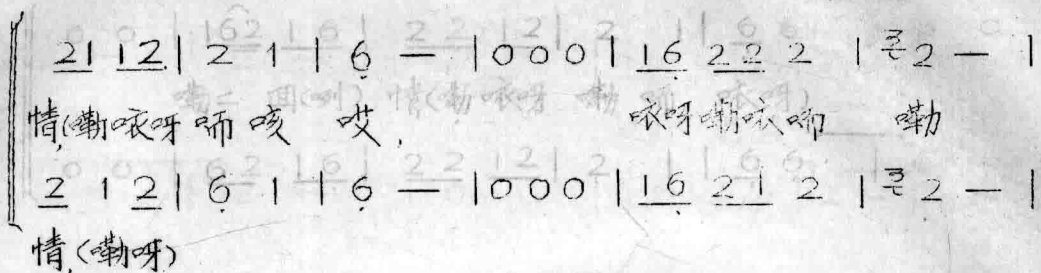 2 1 1 2 | 2 1 | 6 — | 0 0 0 | 1 6 2 2 2 | 2 — |
情,(嘞哝呀 唡 咳 哎, 哝呀嘞哝唡 嘞
2 1 2 | 6 1 | 6 — | 0 0 0 | 1 6 2 1 2 | 2 — |
情,(嘞呀)